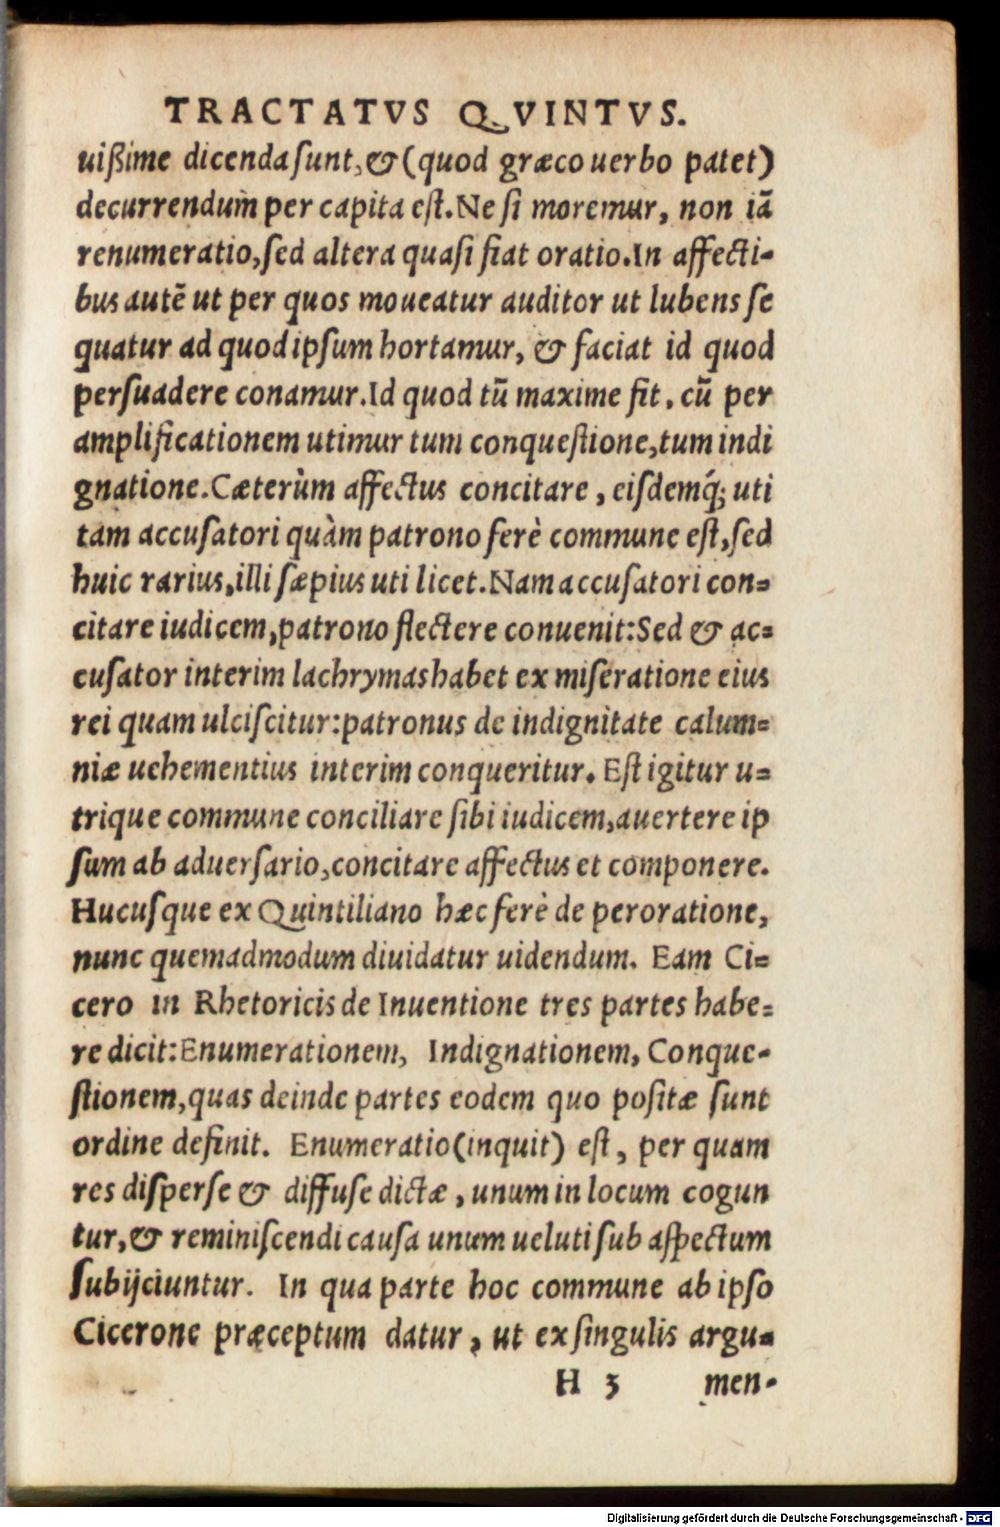 TRACTATVS QVINTVS.
uißime dicenda sunt, & (quod græco uerbo patet)
decurrendum per capita est. Ne si moremur, non iā
renumeratio, sed altera quasi fiat oratio. In affecti-
bus autē ut per quos moueatur auditor ut lubens se
quatur ad quod ipsum hortamur, & faciat id quod
persuadere conamur. Id quod tū maxime fit, cū per
amplificationem utimur tum conquestione, tum indi
gnatione. Cæterùm affectus concitare, eisdemq́; uti
tam accusatori quàm patrono ferè commune est, sed
huic rarius, illi sæpius uti licet. Nam accusatori con-
citare iudicem, patrono flectere conuenit: Sed & ac-
cusator interim lachrymas habet ex miseratione eius
rei quam ulciscitur: patronus de indignitate calum-
niæ uehementius interim conqueritur. Est igitur u-
trique commune conciliare sibi iudicem, auertere ip
sum ab aduersario, concitare affectus et componere.
Hucusque ex Quintiliano hæc ferè de peroratione,
nunc quemadmodum diuidatur uidendum. Eam Ci-
cero in Rhetoricis de Inuentione tres partes habe-
re dicit: Enumerationem, Indignationem, Conque-
stionem, quas deinde partes eodem quo positæ sunt
ordine definit. Enumeratio (inquit) est, per quam
res disperse & diffuse dictæ, unum in locum cogun
tur, & reminiscendi causa unum ueluti sub aspectum
subijciuntur. In qua parte hoc commune ab ipso
Cicerone præceptum datur, ut ex singulis argu-
H 3 men-
Digitalisierung gefördert durch die Deutsche Forschungsgemeinschaft - DFG